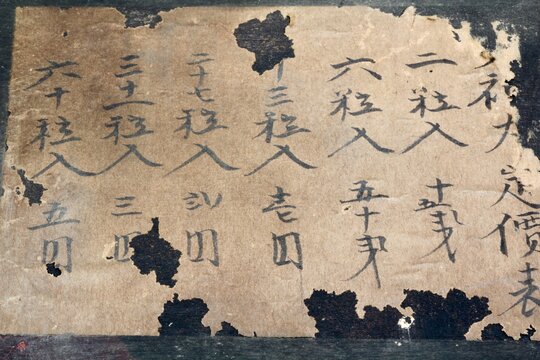 定價表
二粒入 十五戋
六粒入 五十戋
十三粒入 壱円
二十七粒入 弐円
三十一粒入 三円
六十粒入 五円